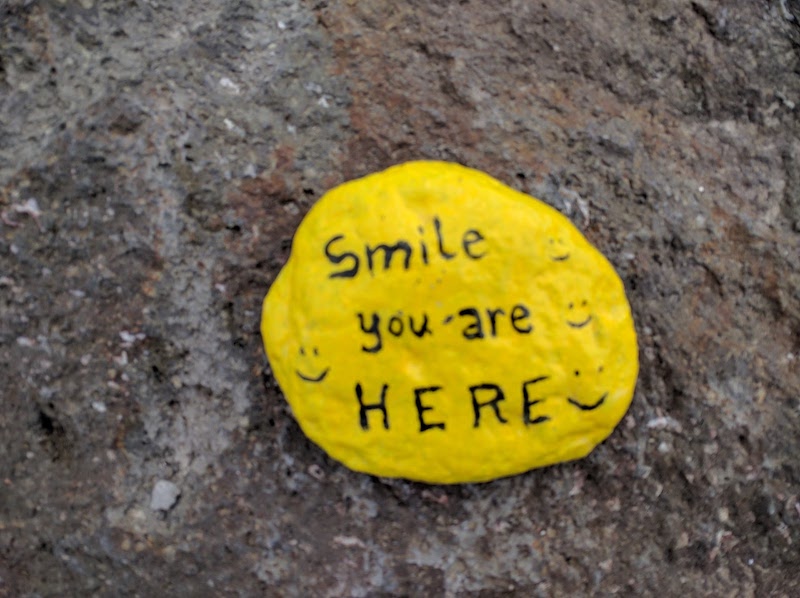 Smile
you are
HERE